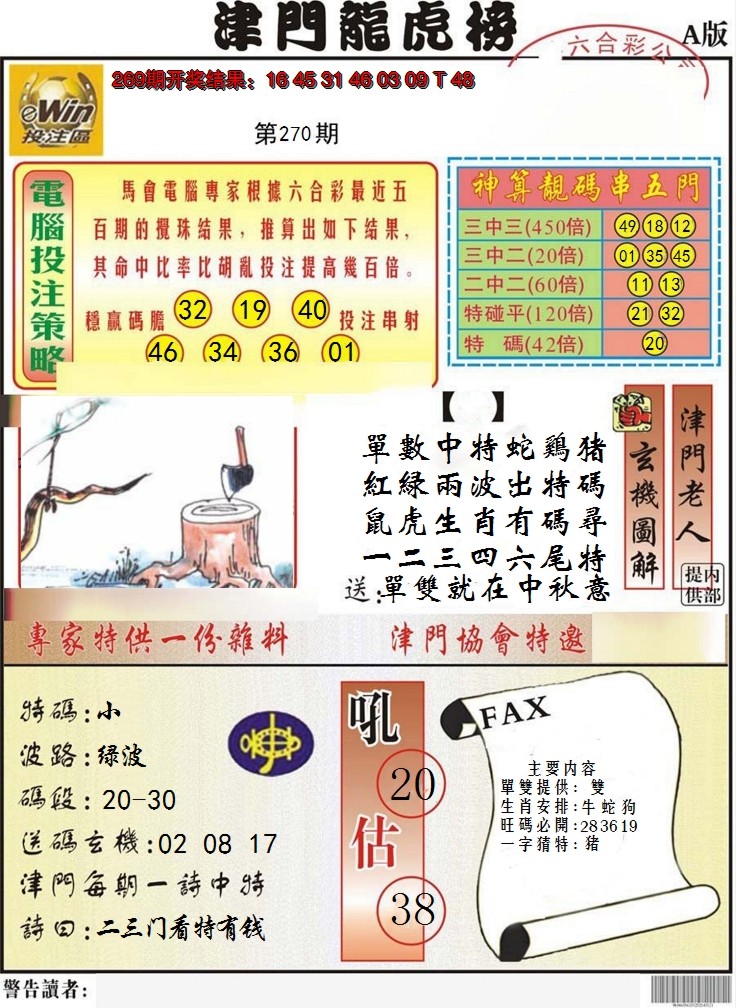 津門龍虎榜
六合彩公
A版
eWin
投注區
269期开奖结果：16 45 31 46 03 09 T 48
第270期
電腦投注策略
馬會電腦專家根據六合彩最近五
百期的攪珠结果，推算出如下结果，
其命中比率比胡亂投注提高幾百倍。
穩贏碼膽 32 19 40 投注串射
46 34 36 01
神算靚碼串五門
三中三(450倍) 49 18 12
三中二(20倍) 01 35 45
二中二(60倍) 11 13
特碰平(120倍) 21 32
特 碼(42倍) 20
【 】
單數中特蛇鷄猪
紅緑兩波出特碼
鼠虎生肖有碼尋
一二三四六尾特
送:單雙就在中秋意
玄機圖解
津門老人
内部提供
專家特供一份雜料
津門協會特邀
特碼:小
波路:绿波
碼段:20-30
送碼玄機:02 08 17
津門每期一詩中特
詩曰:二三门看特有钱
吼
20
估
38
FAX
主要内容
單雙提供: 雙
生肖安排:牛蛇狗
旺碼必開:283619
一字猜特:猪
警告讀者: